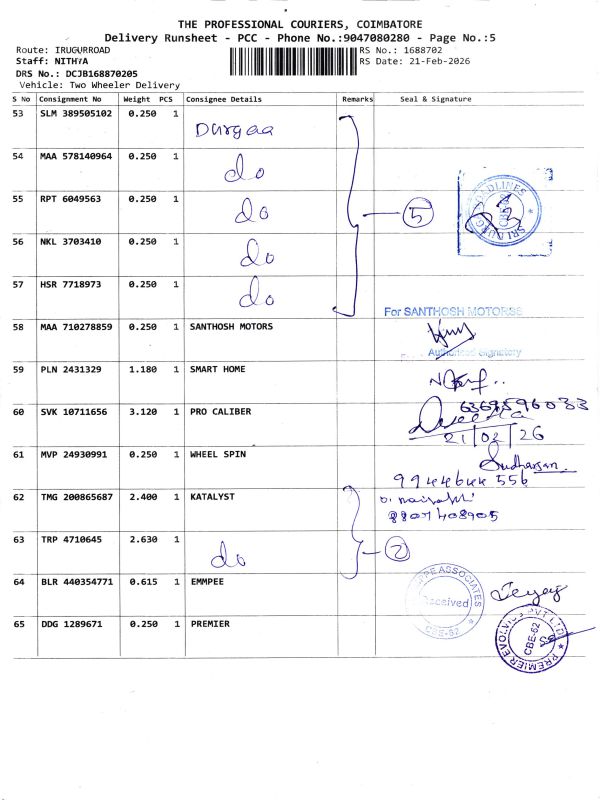 THE PROFESSIONAL COURIERS, COIMBATORE
Delivery Runsheet - PCC - Phone No.:9047080280 - Page No.:5
Route: IRUGURROAD RS No.: 1688702
Staff: NITHYA RS Date: 21-Feb-2026
DRS No.: DCJB168870205
Vehicle: Two Wheeler Delivery
S No Consignment No Weight PCS Consignee Details Remarks Seal & Signature
53 SLM 389505102 0.250 1 Durgaa
54 MAA 578140964 0.250 1 do
55 RPT 6049563 0.250 1 do 5
56 NKL 3703410 0.250 1 do
57 HSR 7718973 0.250 1 do
For SANTHOSH MOTORSS
58 MAA 710278859 0.250 1 SANTHOSH MOTORS
Authorised Signatory
59 PLN 2431329 1.180 1 SMART HOME
60 SVK 10711656 3.120 1 PRO CALIBER 6369596033
21/02/26
61 MVP 24930991 0.250 1 WHEEL SPIN Sudharsan
9944644556
62 TMG 200865687 2.400 1 KATALYST
8807408905
63 TRP 4710645 2.630 1 do 2
64 BLR 440354771 0.615 1 EMMPEE
ASSOCIATES
Received
CBE-62
65 DDG 1289671 0.250 1 PREMIER
PREMIER EVOLVICS PVT LTD
CBE-62